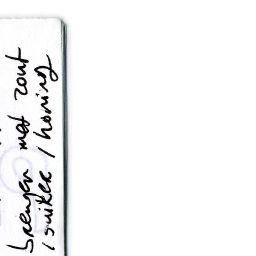 brengen met zout
/ suiker / honing